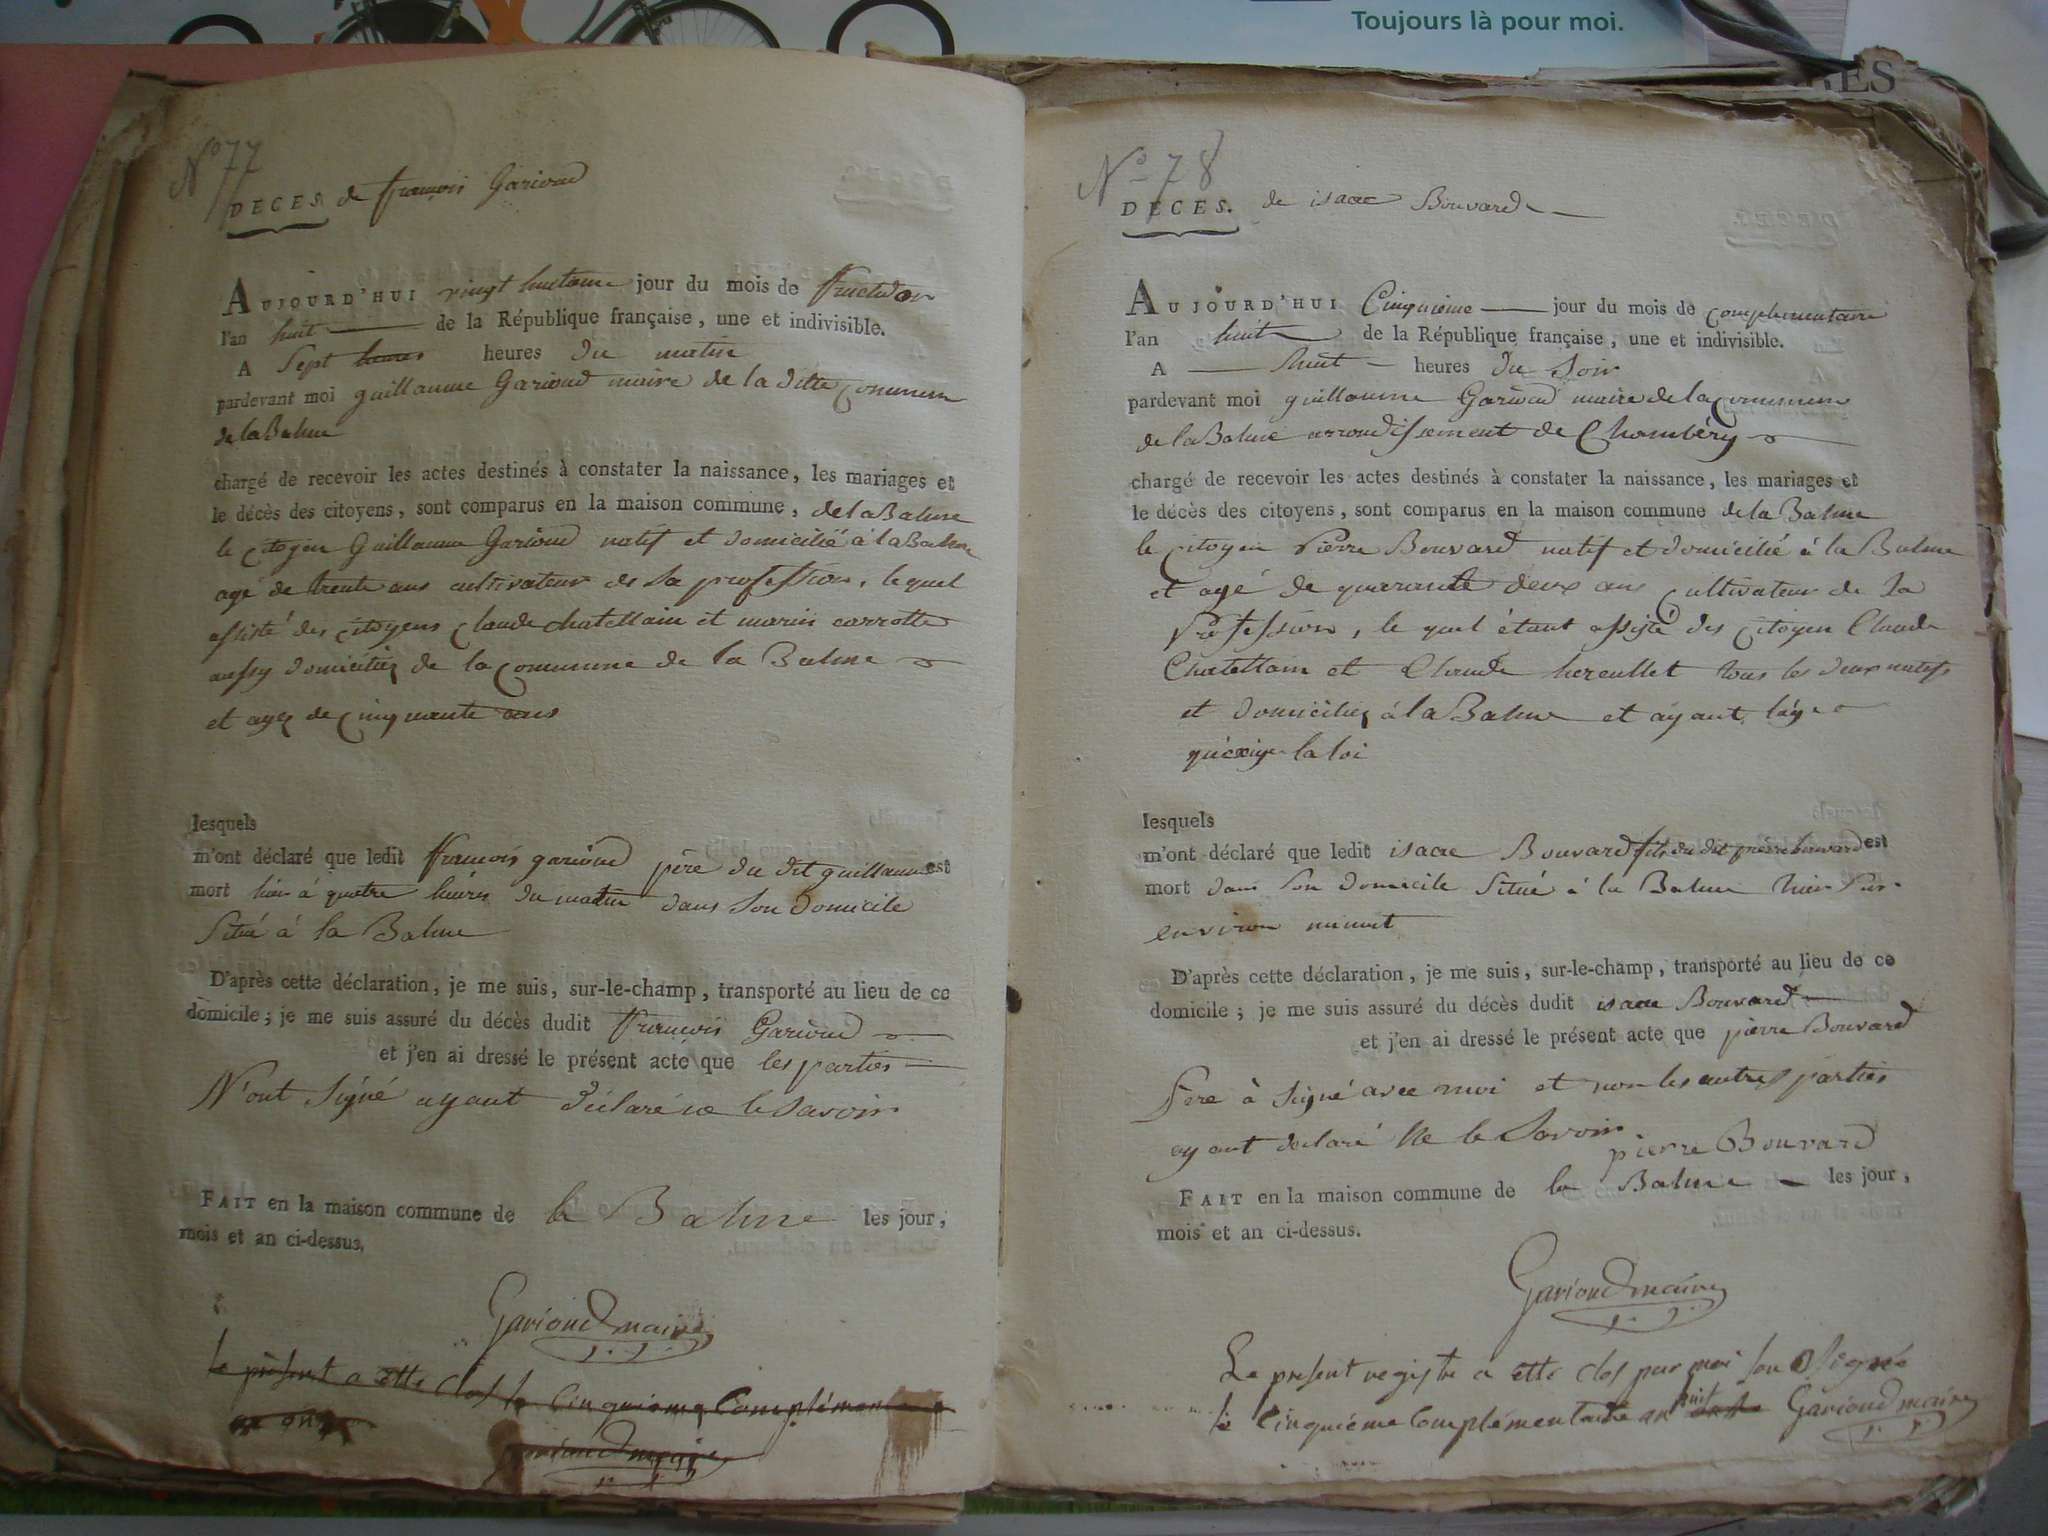 Toujours là pour moi.
GES
N° 77
DECES. de françois Garioud
AUJOURD'HUI vingt huitame jour du mois de fructidor
l'an huit de la République française, une et indivisible.
A Sept heures heures du matin
pardevant moi guillaume Garioud maire de la ditte commune
de la Balme
chargé de recevoir les actes destinés à constater la naissance, les mariages et
le décès des citoyens, sont comparus en la maison commune, de la Balme
le citoyen Guillaume Garioud natif et domicilié à la Balme
agé de trente ans cultivateur de sa profession, lequel
assisté des citoyens claude chatellain et marin carrotte
aussy domiciliez de la commune de la Balme
et agez de cinquante ans
lesquels
m'ont déclaré que ledit françois garioud père du dit guillaume est
mort hier à quatre heures du matin dans son domicile
situé à la Balme
D'après cette déclaration, je me suis, sur-le-champ, transporté au lieu de ce
domicile; je me suis assuré du décès dudit françois Garioud
et j'en ai dressé le présent acte que les parties
N'ont signé ayant déclaré ne le savoir
FAIT en la maison commune de la Balme les jour,
mois et an ci-dessus.
Garioud maire
le présent a etté clos le cinquieme Complémentaire
an onze
Garioud maire
N° 78
DECES. de isaac Bouvard
AUJOURD'HUI Cinquieme jour du mois de complementaire
l'an huit de la République française, une et indivisible.
A huit heures du soir
pardevant moi guillaume Garioud maire de la commune
de la Balme arrondissement de Chambéry
chargé de recevoir les actes destinés à constater la naissance, les mariages et
le décès des citoyens, sont comparus en la maison commune de la Balme
le citoyen Pierre Bouvard natif et domicilié à la Balme
et agé de quarante deux ans cultivateur de sa
profession, le quel étant assisté des citoyen Claude
Chatellain et Claude hereullet tous les deux natifs
et domiciliez à la Balme et ayant l'age
qu'exige la loi
lesquels
m'ont déclaré que ledit isaac Bouvard fils du dit pierre bouvard est
mort dans son domicile situé à la Balme hier sur
environ minuit
D'après cette déclaration, je me suis, sur-le-champ, transporté au lieu de ce
domicile; je me suis assuré du décès dudit isaac Bouvard
et j'en ai dressé le présent acte que pierre Bouvard
Père à signé avec moi et non les autres parties
ayant declaré Ne le savoir
pierre Bouvard
FAIT en la maison commune de la Balme les jour,
mois et an ci-dessus.
Garioud maire
Le present registre a etté clos par moi sou signé
le cinquiéme Complémentaire an huit Garioud maire